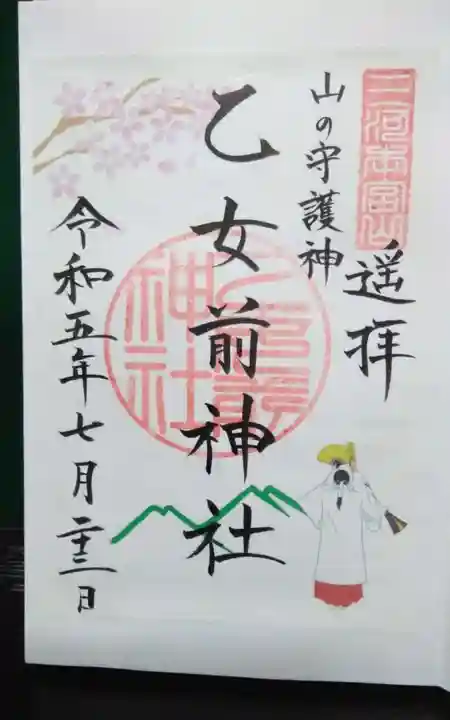 三河本宮山
遥拝
山の守護神
乙女前神社
乙女前神社
令和五年七月二十三日